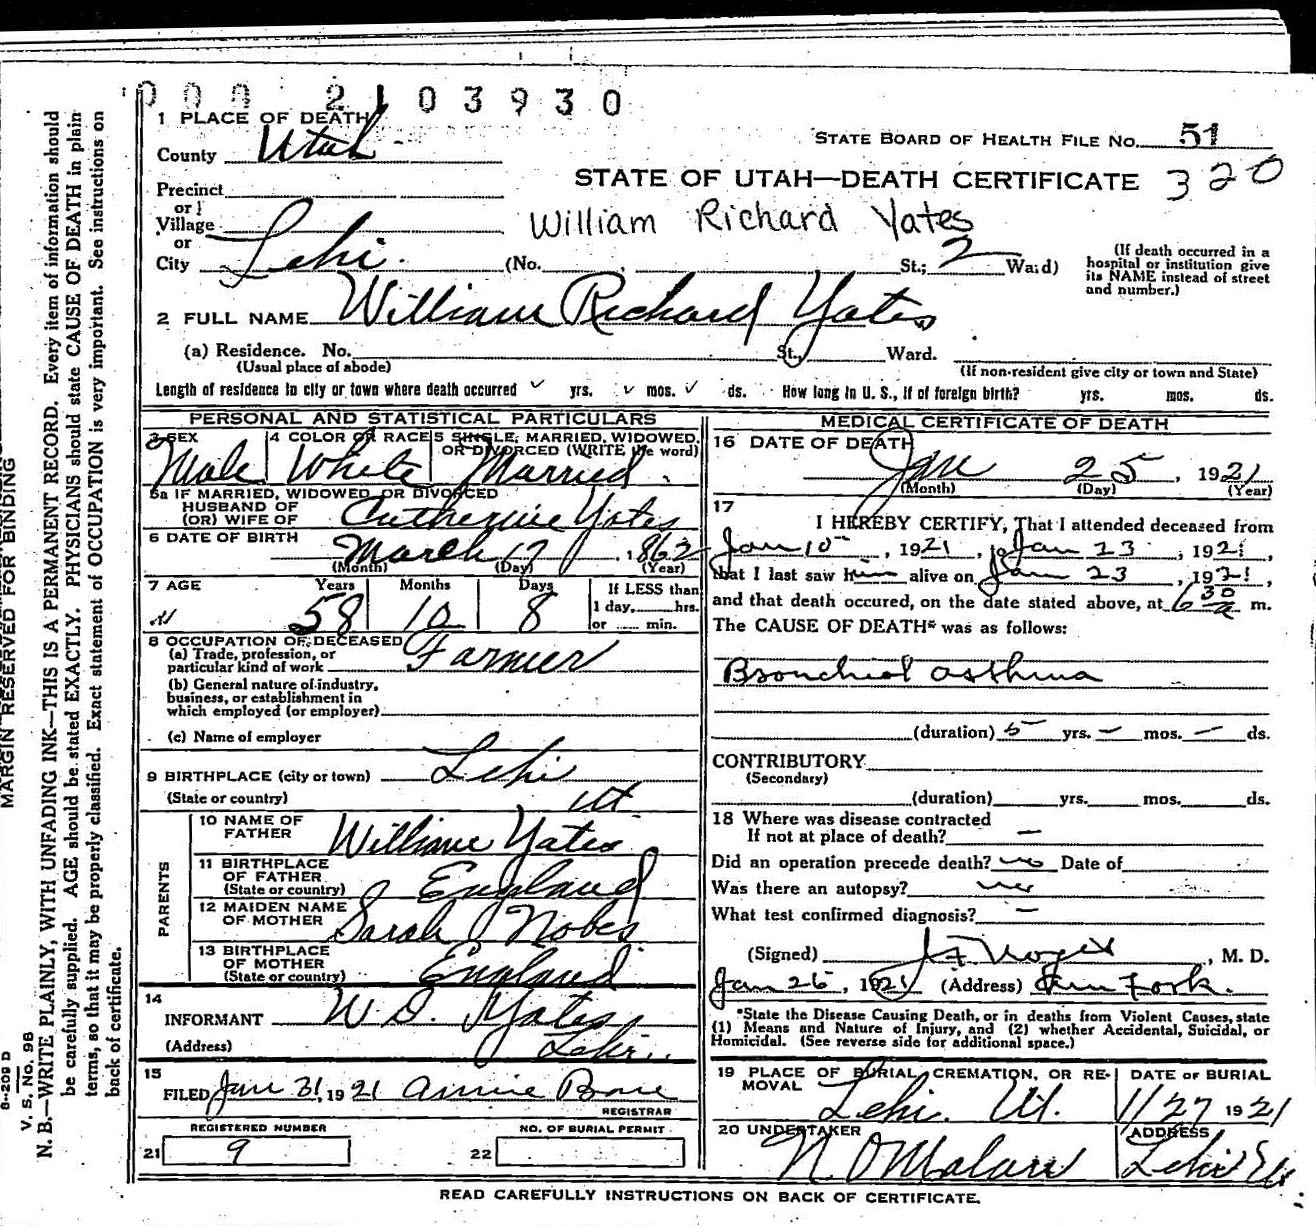 000 2103930
1 PLACE OF DEATH
County Utah
STATE BOARD OF HEALTH FILE NO. 51
Precinct
STATE OF UTAH—DEATH CERTIFICATE 320
or
Village
William Richard Yates
or
City Lehi. (No. St.; 2 Ward)
(If death occurred in a
hospital or institution give
its NAME instead of street
and number.)
2 FULL NAME William Richard Yates
(a) Residence. No. St., Ward.
(Usual place of abode)
(If non-resident give city or town and State)
Length of residence in city or town where death occurred yrs. mos. ds. How long in U. S., if of foreign birth? yrs. mos. ds.
PERSONAL AND STATISTICAL PARTICULARS
3 SEX
Male
4 COLOR OR RACE
White
5 SINGLE, MARRIED, WIDOWED,
OR DIVORCED (WRITE the word)
Married.
5a IF MARRIED, WIDOWED OR DIVORCED
HUSBAND OF
(OR) WIFE OF Catherine Yates
6 DATE OF BIRTH March 17, 1862
(Month) (Day) (Year)
7 AGE Years Months Days
58 10 8
If LESS than
1 day, hrs.
or min.
8 OCCUPATION OF DECEASED
(a) Trade, profession, or
particular kind of work Farmer
(b) General nature of industry,
business, or establishment in
which employed (or employer)
(c) Name of employer
9 BIRTHPLACE (city or town) Lehi
(State or country) Ut
PARENTS
10 NAME OF
FATHER William Yates
11 BIRTHPLACE
OF FATHER
(State or country) England
12 MAIDEN NAME
OF MOTHER Sarah Nobes
13 BIRTHPLACE
OF MOTHER
(State or country) England
14
INFORMANT W. D. Yates
(Address) Lehi.
15
FILED Jan 31, 1921 Annie Bone
REGISTRAR
REGISTERED NUMBER
21 9
NO. OF BURIAL PERMIT
22
MEDICAL CERTIFICATE OF DEATH
16 DATE OF DEATH
Jan 25, 1921
(Month) (Day) (Year)
17
I HEREBY CERTIFY, That I attended deceased from
Jan 10, 1921, to Jan 23, 1921,
that I last saw him alive on Jan 23, 1921,
and that death occured, on the date stated above, at 6 30 a m.
The CAUSE OF DEATH* was as follows:
Bronchial asthma
(duration) 5 yrs. – mos. – ds.
CONTRIBUTORY
(Secondary)
(duration) yrs. mos. ds.
18 Where was disease contracted
If not at place of death? –
Did an operation precede death? no Date of
Was there an autopsy? no
What test confirmed diagnosis? –
(Signed) , M. D.
Jan 26, 1921 (Address) Am Fork.
*State the Disease Causing Death, or in deaths from Violent Causes, state
(1) Means and Nature of Injury, and (2) whether Accidental, Suicidal, or
Homicidal. (See reverse side for additional space.)
19 PLACE OF BURIAL, CREMATION, OR RE-
MOVAL Lehi. Ut.
DATE OF BURIAL
1/27 1921
20 UNDERTAKER
ADDRESS
Lehi
READ CAREFULLY INSTRUCTIONS ON BACK OF CERTIFICATE.
MARGIN RESERVED FOR BINDING
V. S. No. 98
N. B.—WRITE PLAINLY, WITH UNFADING INK—THIS IS A PERMANENT RECORD. Every item of information should
be carefully supplied. AGE should be stated EXACTLY. PHYSICIANS should state CAUSE OF DEATH in plain
terms, so that it may be properly classified. Exact statement of OCCUPATION is very important. See instructions on
back of certificate.